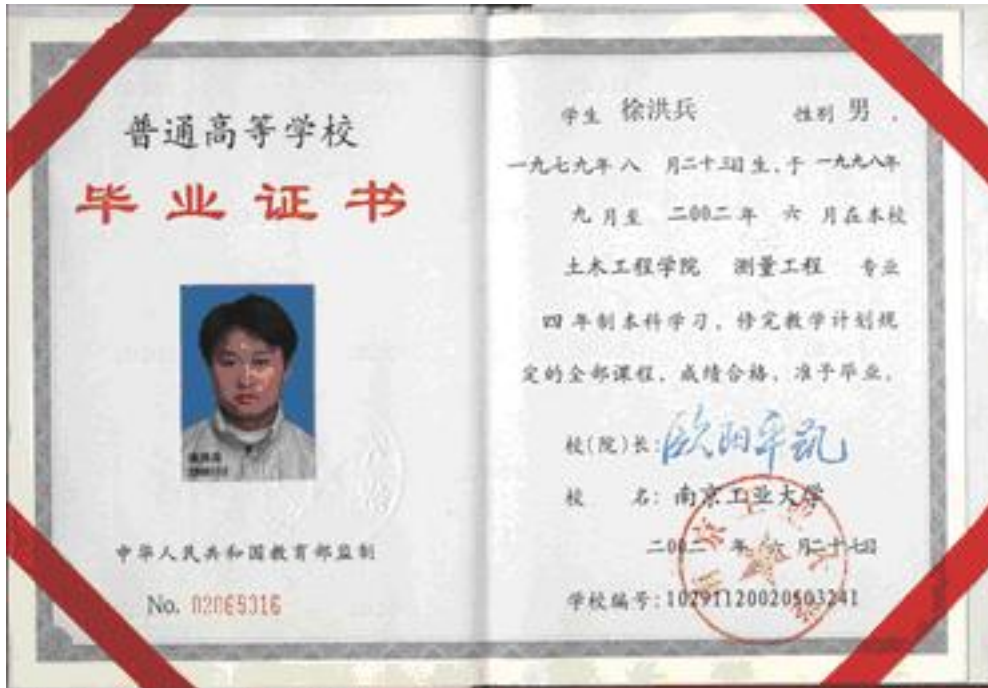 普通高等学校
毕业证书
中华人民共和国教育部监制
No. 02065316
学生 徐洪兵 性别 男 ,
一九七九年 八 月二十三日生,于 一九九八年
九 月至 二00二年 六 月在本校
土木工程学院 测量工程 专业
四 年制本科学习,修完教学计划规
定的全部课程,成绩合格,准予毕业。
校(院)长: 欧阳平凯
校 名: 南京工业大学
二00二 年 六 月二十七日
学校编号: 10291120020503241